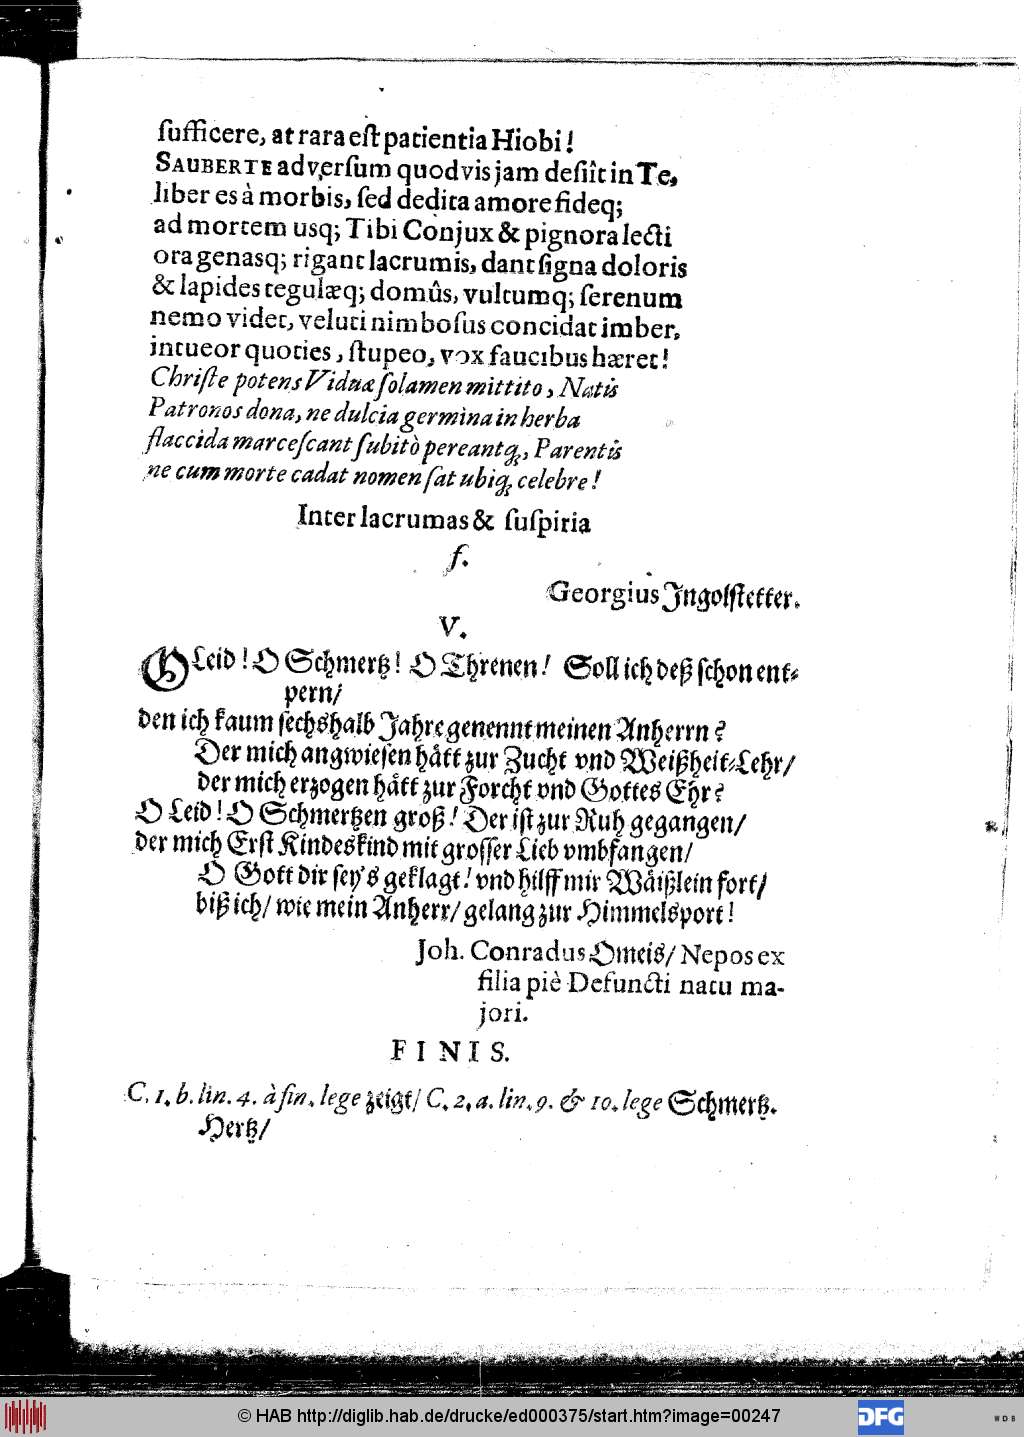 ſufficere, at rara eſt patientia Hiobi!
SAUBERTE adverſum quodvis jam deſiît in Te,
liber es à morbis, ſed dedita amore fideq;
ad mortem usq; Tibi Conjux & pignora lecti
ora genasq; rigant lacrumis, dant ſigna doloris
& lapides tegulæq; domûs, vultumq; ſerenum
nemo videt, veluti nimboſus concidat imber,
intueor quoties, ſtupeo, vox faucibus hæret!
Chriſte potens Viduæ ſolamen mittito, Natis
Patronos dona, ne dulcia germina in herba
flaccida marceſcant ſubitò pereantq;, Parentis
ne cum morte cadat nomen ſat ubiq; celebre!
Inter lacrumas & ſuſpiria
f.
Georgius Jngolſtetter.
V.
O Leid! O Schmertz! O Threnen! Soll ich deß ſchon ent-
pern/
den ich kaum ſechshalb Jahre genennt meinen Anherrn?
Der mich angwieſen hått zur Zucht vnd Weißheit-Lehr/
der mich erzogen hått zur Forcht vnd Gottes Ehr?
O Leid! O Schmertzen groß! Der iſt zur Ruh gegangen/
der mich Erſt Kindeskind mit groſſer Lieb vmbfangen/
O Gott dir ſey's geklagt! vnd hilff mir Wåißlein fort/
biß ich/ wie mein Anherr/ gelang zur Himmelsport!
Joh. Conradus Omeis/ Nepos ex
filia piè Defuncti natu ma-
jori.
FINIS.
C. 1. b. lin. 4. à fin. lege zeigt/ C. 2. a. lin. 9. & 10. lege Schmertz.
Hertz/
© HAB http://diglib.hab.de/drucke/ed000375/start.htm?image=00247
DFG
WDB